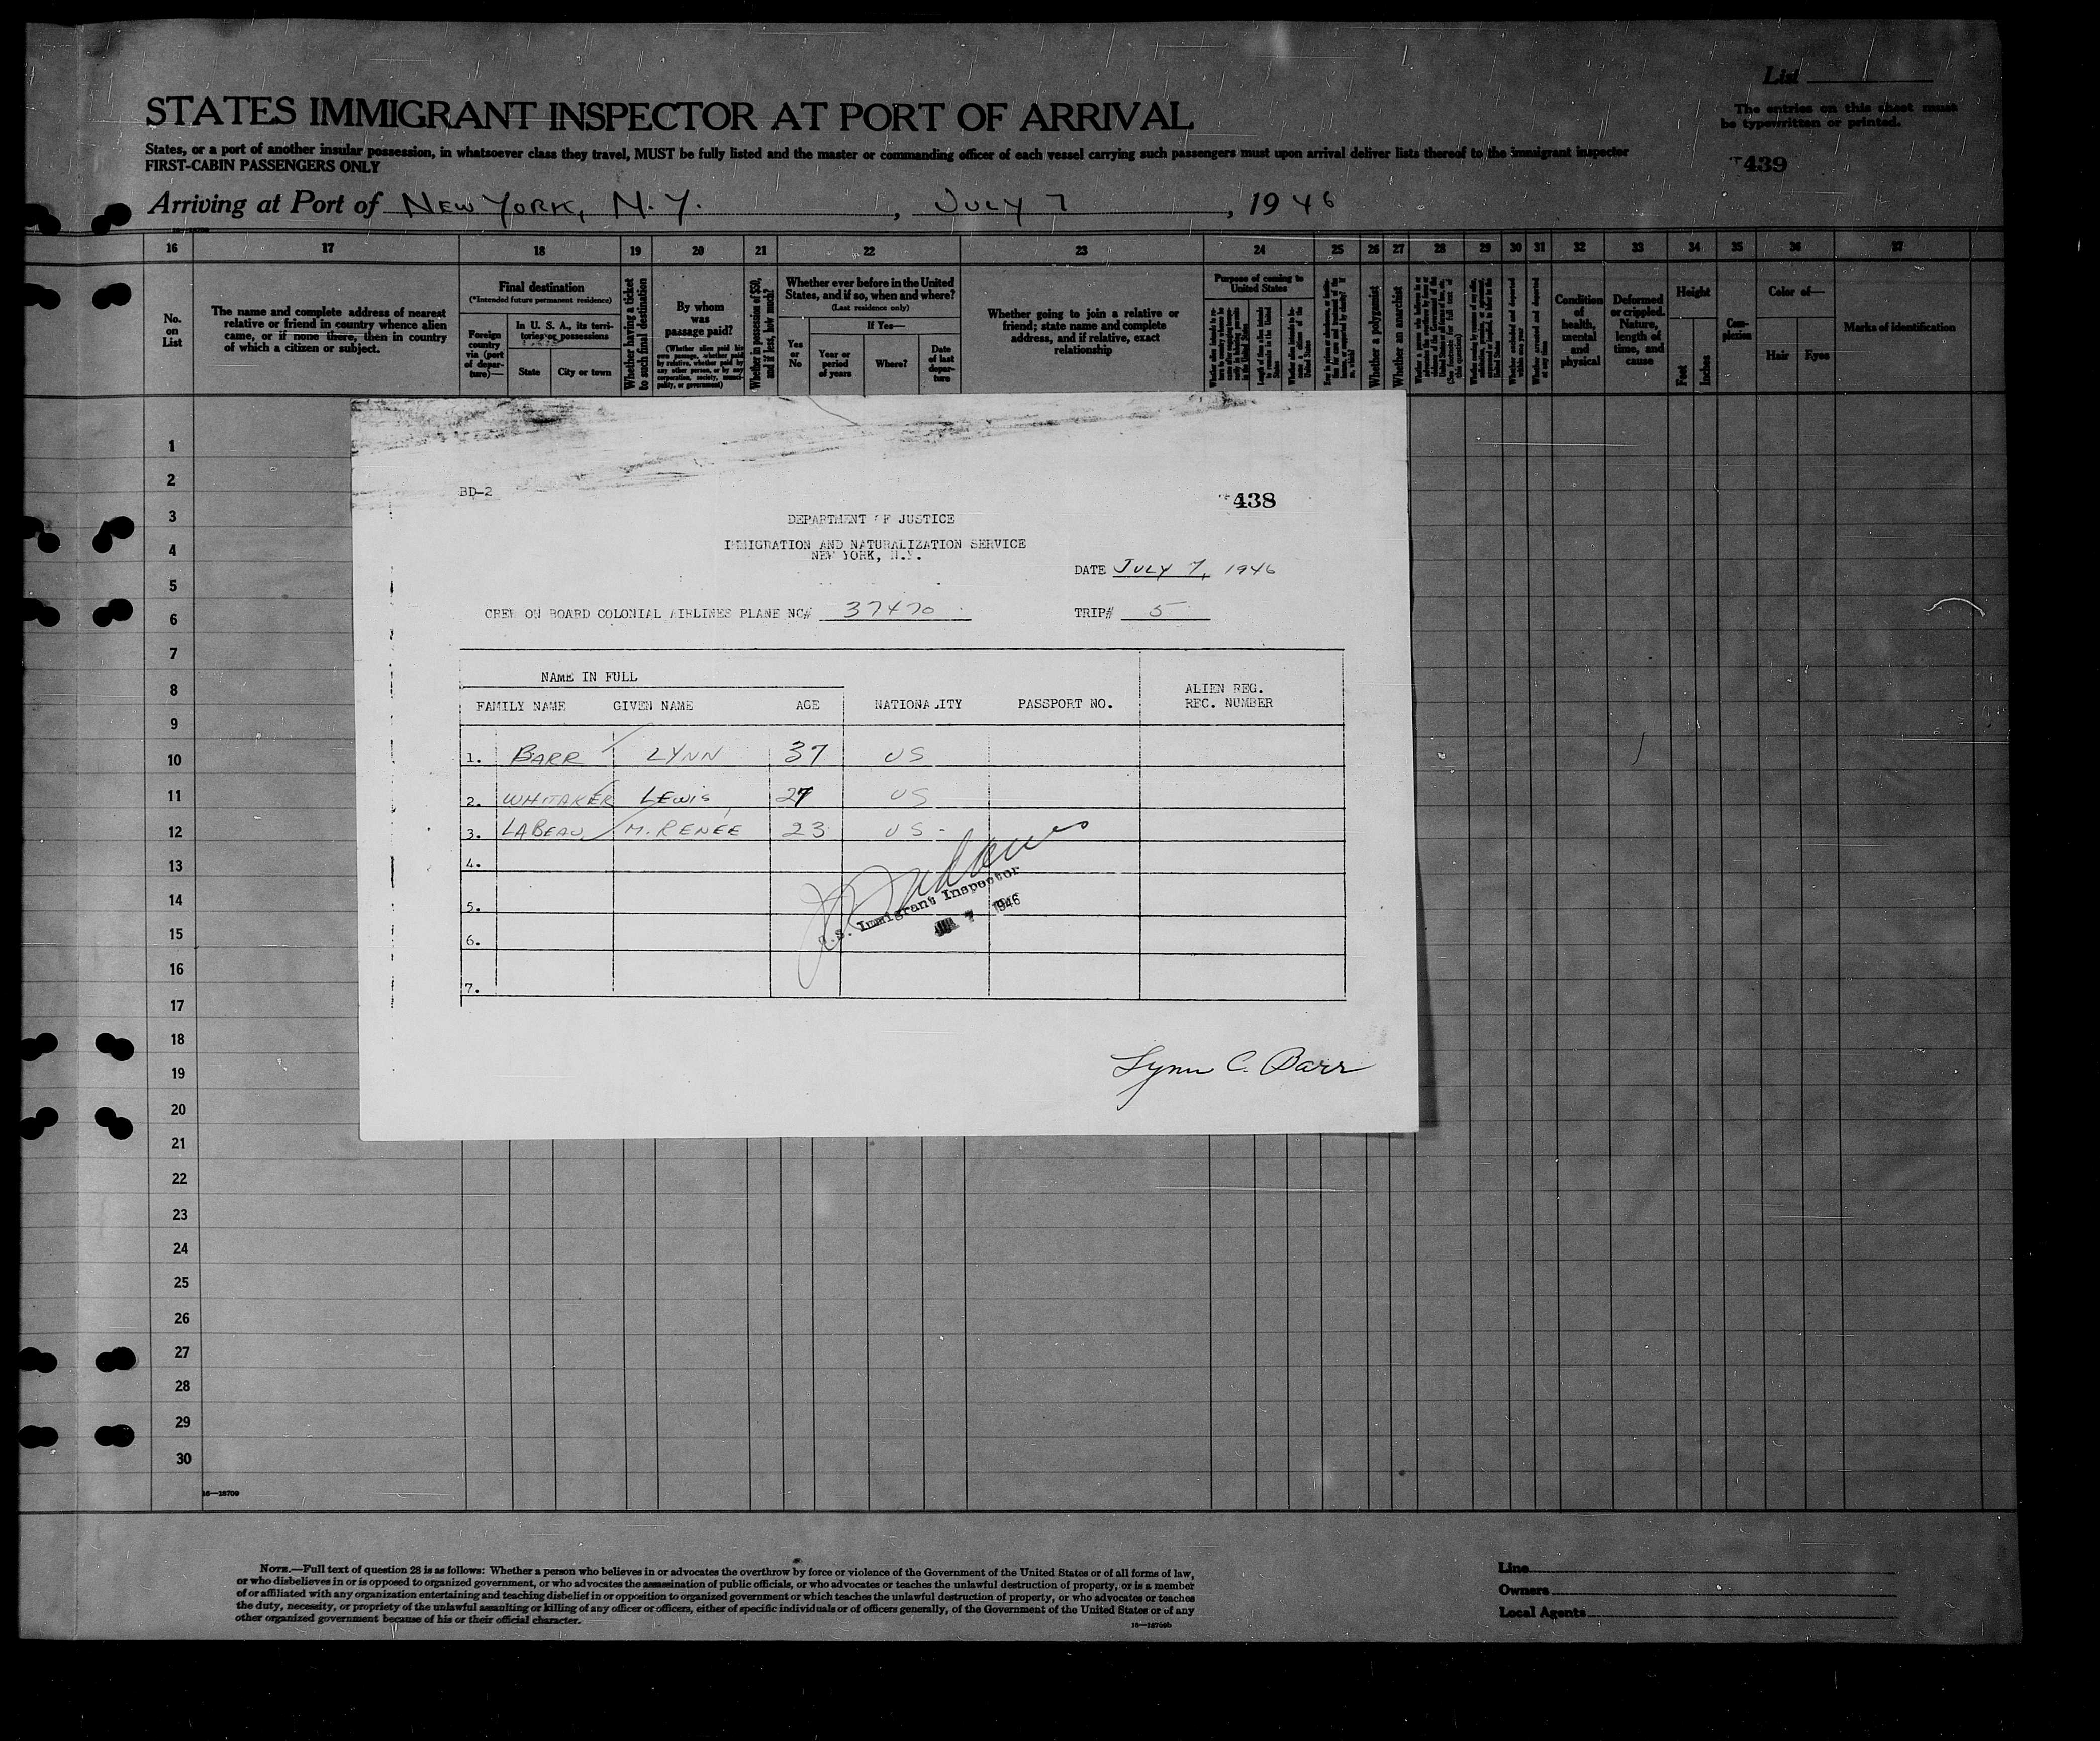 List
STATES IMMIGRANT INSPECTOR AT PORT OF ARRIVAL
The entries on this sheet must
be typewritten or printed.
States, or a port of another insular possession, in whatsoever class they travel, MUST be fully listed and the master or commanding officer of each vessel carrying such passengers must upon arrival deliver lists thereof to the immigrant inspector
FIRST-CABIN PASSENGERS ONLY
439
Arriving at Port of NEW YORK, N.Y., JULY 7, 1946
16 17 18 19 20 21 22 23 24 25 26 27 28 29 30 31 32 33 34 35 36 37
No.
on
List
The name and complete address of nearest
relative or friend in country whence alien
came, or if none there, then in country
of which a citizen or subject.
Final destination
(*Intended future permanent residence)
Foreign
country
via (port
of depar-
ture)—
In U. S. A., its terri-
tories or possessions
State
City or town
Whether having a ticket
to such final destination
By whom
was
passage paid?
(Whether alien paid his
own passage, whether paid
by relative, whether paid by
any other person, or by any
corporation, society, munici-
pality, or government)
Whether in possession of $50,
and if less, how much?
Whether ever before in the United
States, and if so, when and where?
(Last residence only)
Yes
or
No
If Yes—
Year or
period
of years
Where?
Date
of last
depar-
ture
Whether going to join a relative or
friend; state name and complete
address, and if relative, exact
relationship
Purpose of coming to
United States
Length of time alien intends
to remain in the United
States
Whether a polygamist
Whether an anarchist
Condition
of
health,
mental
and
physical
Deformed
or crippled.
Nature,
length of
time, and
cause
Height
Feet
Inches
Com-
plexion
Color of—
Hair
Eyes
Marks of identification
1
2
3
4
5
6
7
8
9
10
11
12
13
14
15
16
17
18
19
20
21
22
23
24
25
26
27
28
29
30
BD-2
438
DEPARTMENT OF JUSTICE
IMMIGRATION AND NATURALIZATION SERVICE
NEW YORK, N.Y.
DATE JULY 7, 1946
CREW ON BOARD COLONIAL AIRLINES PLANE NC# 37470 TRIP# 5
NAME IN FULL
FAMILY NAME GIVEN NAME AGE NATIONALITY PASSPORT NO. ALIEN REG.
REC. NUMBER
1. BARR LYNN 37 US
2. WHITAKER LEWIS 27 US
3. LABEAU M. RENÉE 23 US
4.
5.
6.
7.
U.S. Immigrant Inspector
JUL 7 1946
Lynn C. Barr
16—18709
NOTE.—Full text of question 28 is as follows: Whether a person who believes in or advocates the overthrow by force or violence of the Government of the United States or of all forms of law,
or who disbelieves in or is opposed to organized government, or who advocates the assassination of public officials, or who advocates or teaches the unlawful destruction of property, or is a member
of or affiliated with any organization entertaining and teaching disbelief in or opposition to organized government or which teaches the unlawful destruction of property, or who advocates or teaches
the duty, necessity, or propriety of the unlawful assaulting or killing of any officer or officers, either of specific individuals or of officers generally, of the Government of the United States or of any
other organized government because of his or their official character.
16—18709b
Line
Owners
Local Agents